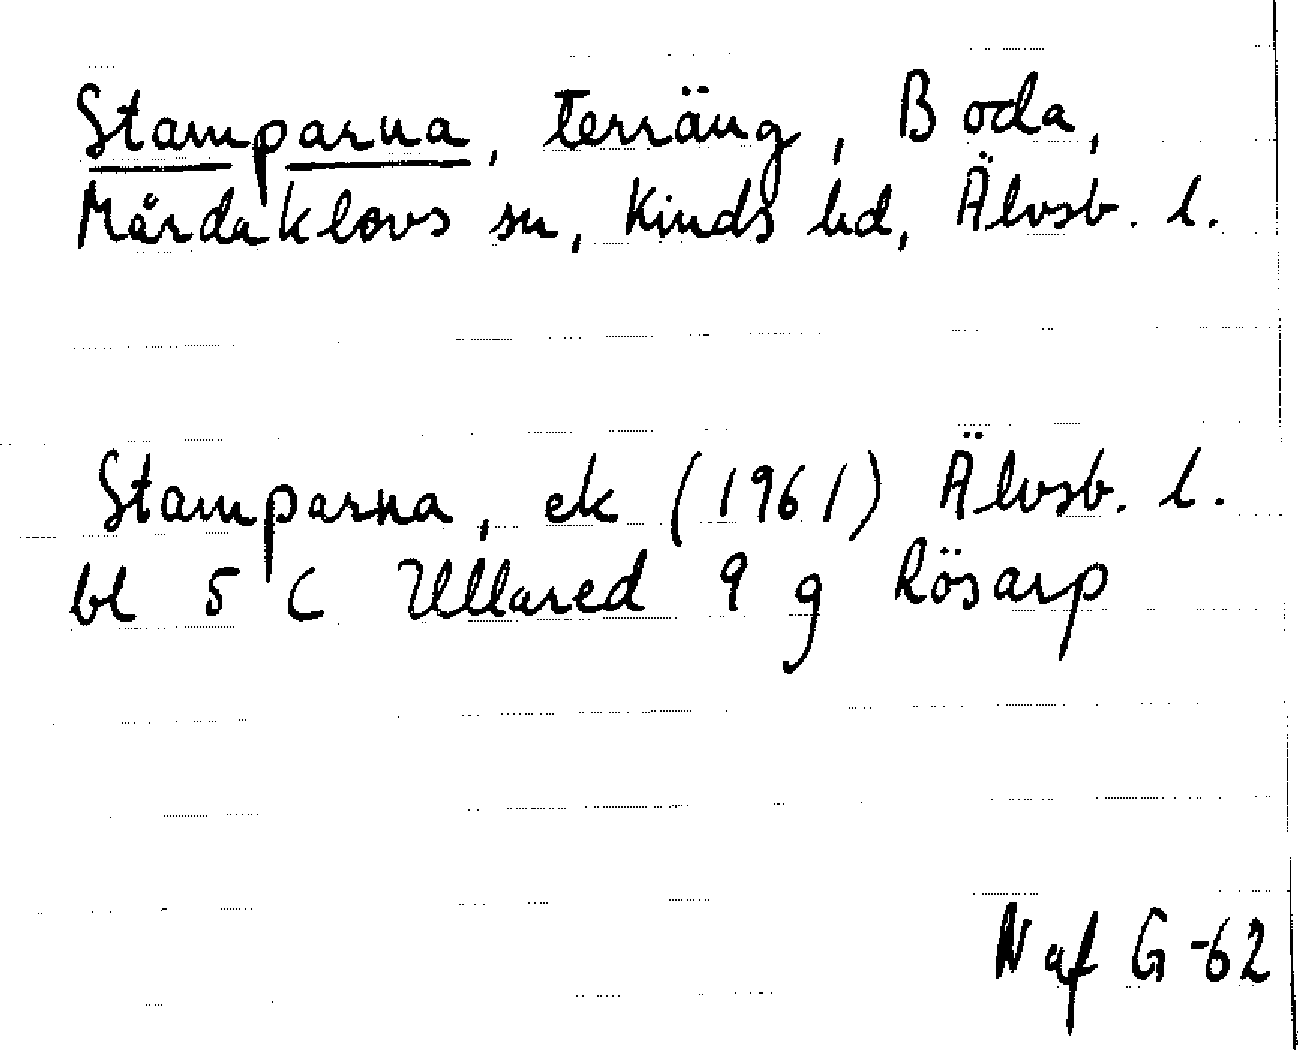 Stamparna, Terräng, Boda,
Mårdaklovs sn, Kinds hd, Älvsb. l.
Stamparna, ek (1961) Älvsb. l.
bl 5 C Ullared 9 g Rösarp
N af G -62